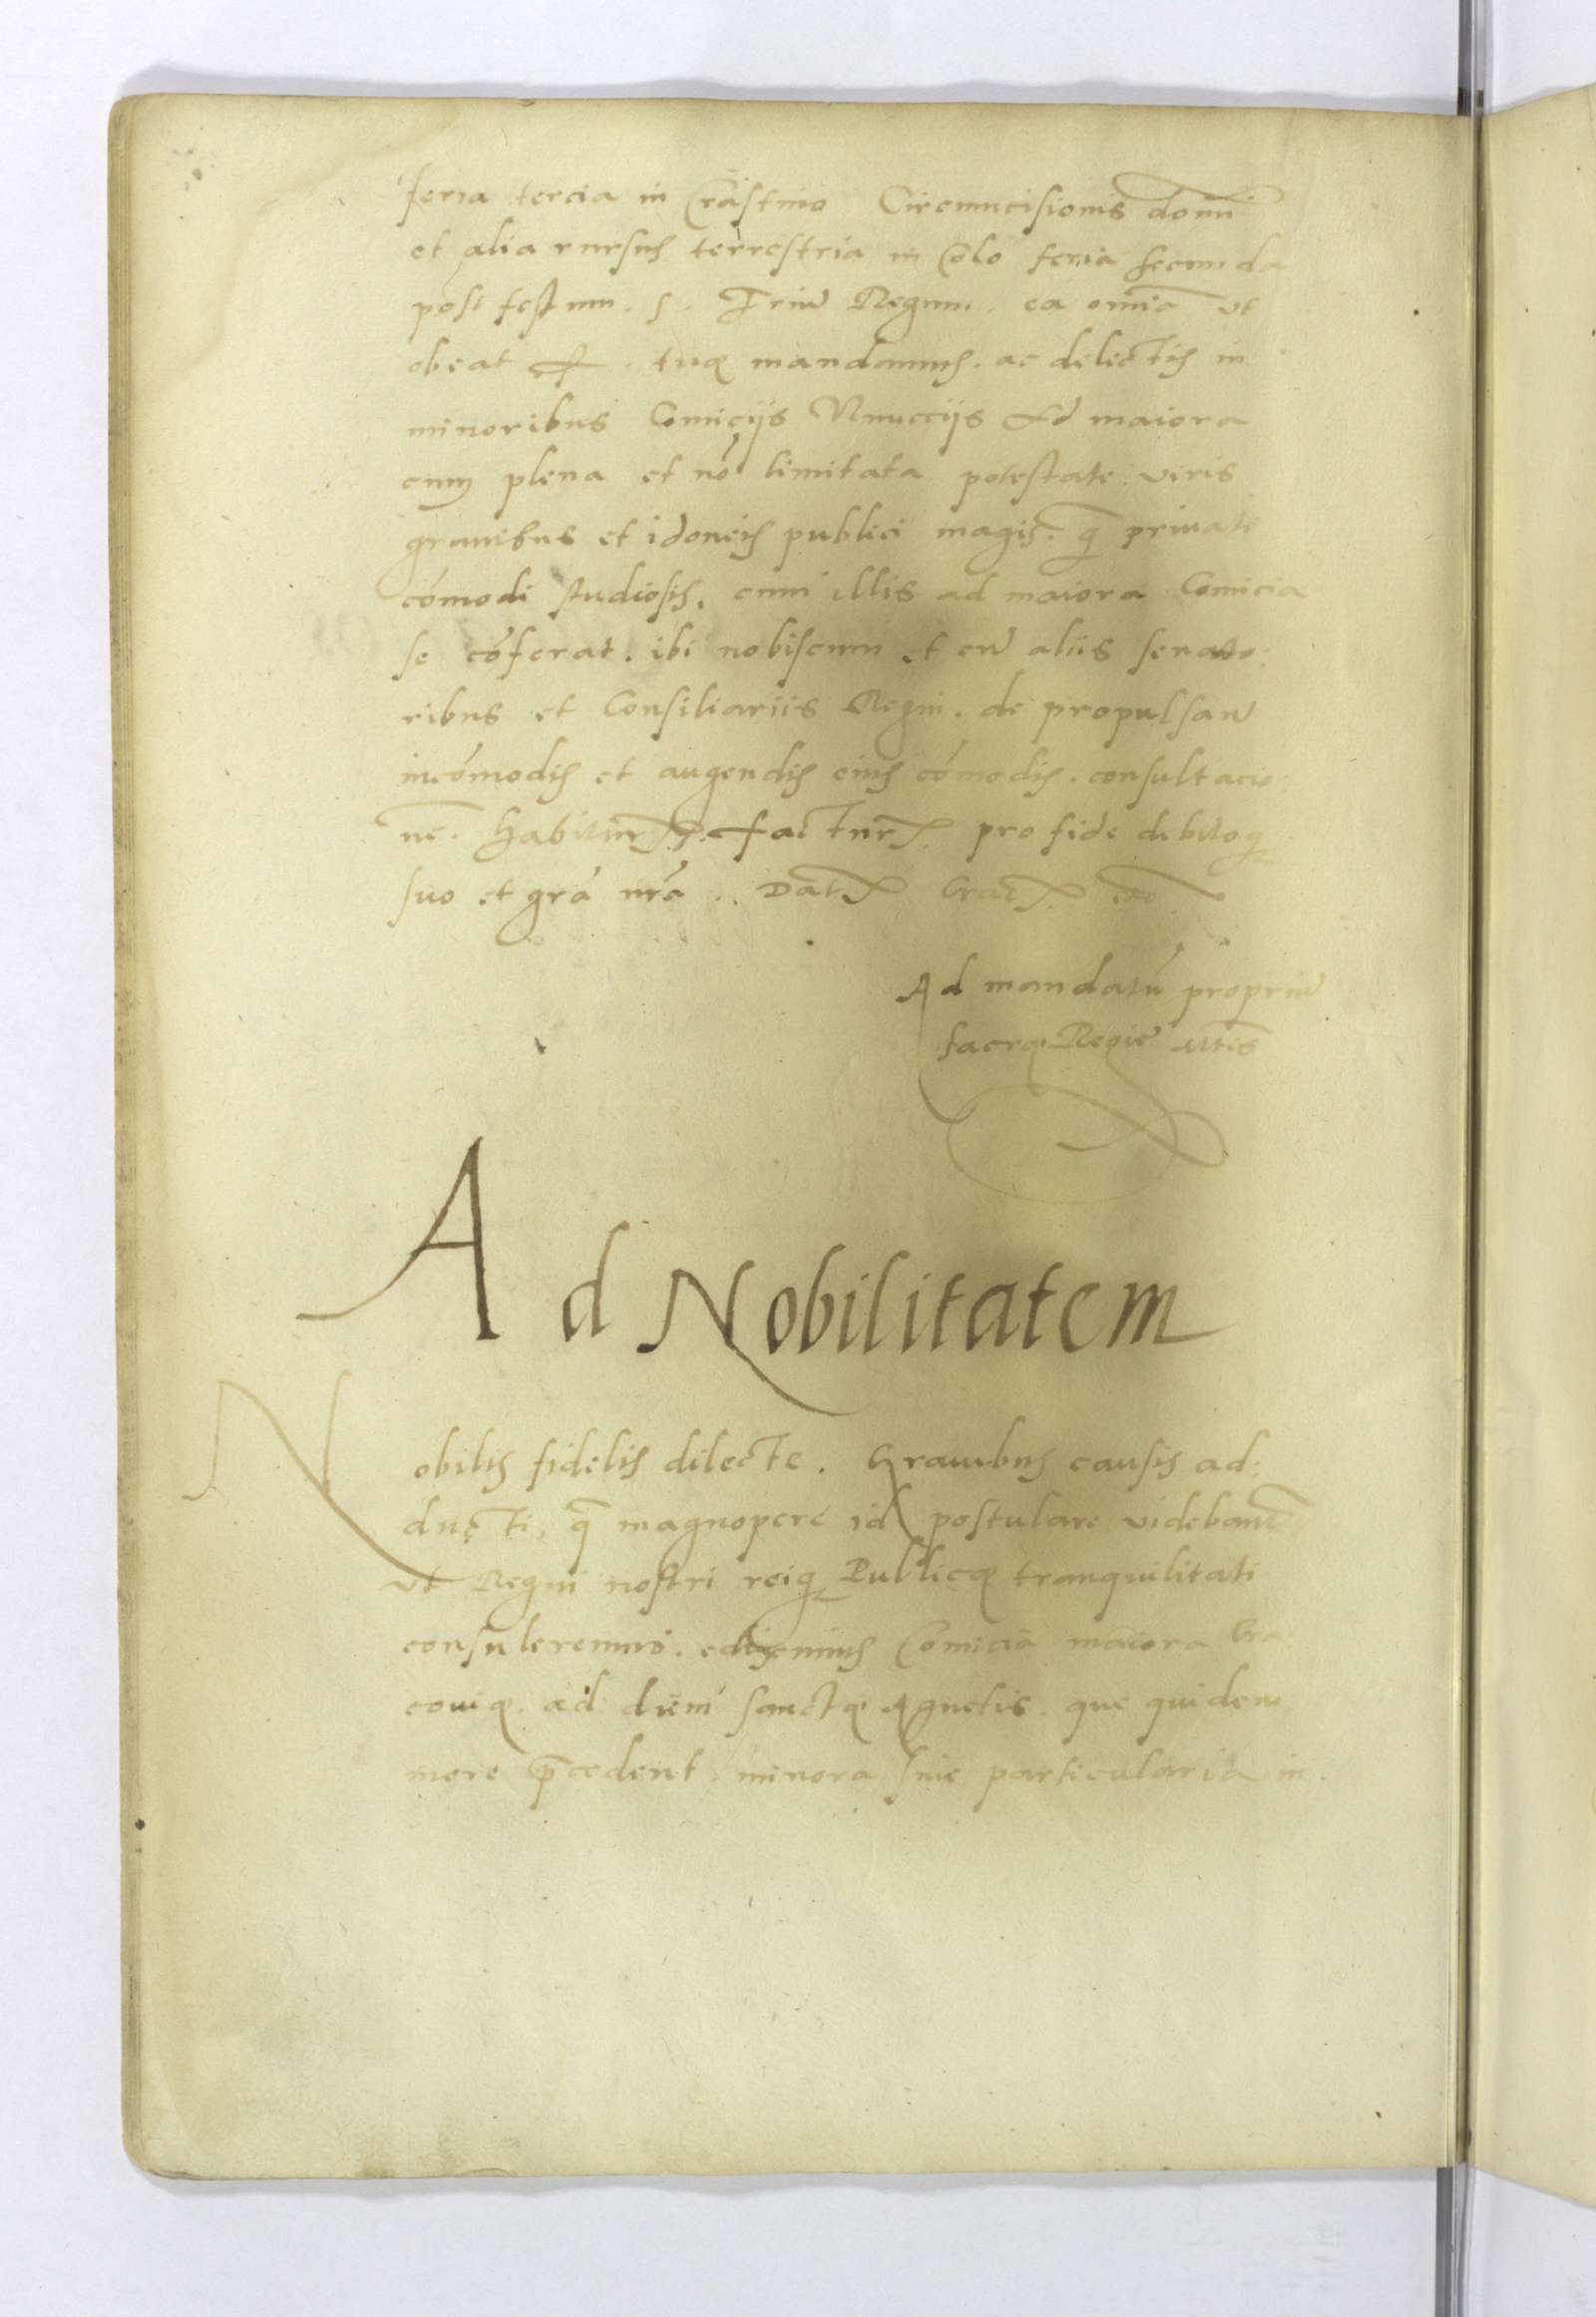 feria tercia in Crastino Circumcisionis domī
et alia rursus terrestria in Colo feria secunda
post festum . S . Triū Regum . ea omīa vt
obeat . tuę mandamus . ac delectis in
minoribus Comicijs Nuncijs Ad maiora
cum plena et nō limitata potestate . viris
grauibus et idoneis publici magis . q̄ priuati
cōmodi studiosis . cum illis ad maiora Comicia
se cōferat . ibi nobiscum et cū aliis senato:
ribus et Consiliariis Regni . de propulsan̄
incōmodis et augendis eius cōmodis . consultacio:
nē . habitur . factur . pro fide debitoq
suo et grā nrā . . Dat Crac
Ad mandatū propriū
sacrę Regie mtis
Ad Nobilitatem
Nobilis fidelis dilecte . Grauibus causis ad:
ducti , q̄ magnopere id postulare videbant̄
vt Regni nostri reiq Publicę tranquilitati
consuleremus . ediximus Comicia maiora Cra
couię . ad diem sanctę Agnetis . que quidem
more p̄cedent . minora siue particularia in .